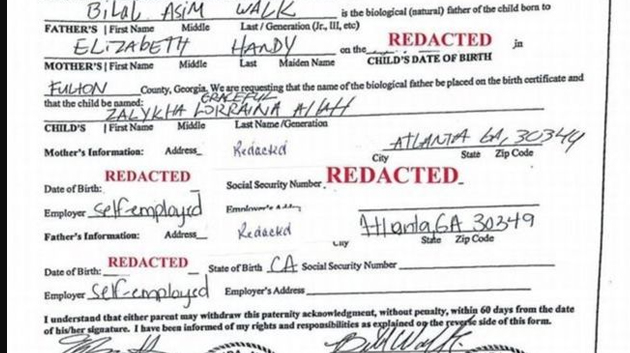 Bilal Asim WALK is the biological (natural) father of the child born to
FATHER'S | First Name Middle Last / Generation (Jr., III, etc)
ELIZABETH HANDY on the REDACTED in
MOTHER'S | First Name Middle Last Maiden Name CHILD'S DATE OF BIRTH
FULTON County, Georgia. We are requesting that the name of the biological father be placed on the birth certificate and
that the child be named: GRACEFUL
ZALYKHA LORRAINA Allah
CHILD'S | First Name Middle Last Name /Generation
Mother's Information: Address Redacted ATLANTA GA, 30344
City State Zip Code
Date of Birth: REDACTED Social Security Number REDACTED
Employer Self-employed
Father's Information: Address Redacted Atlanta, GA 30349
City State Zip Code
Date of Birth: REDACTED State of Birth CA Social Security Number
Employer Self-employed Employer's Address
I understand that either parent may withdraw this paternity acknowledgment, without penalty, within 60 days from the date
of his/her signature. I have been informed of my rights and responsibilities as explained on the reverse side of this form.